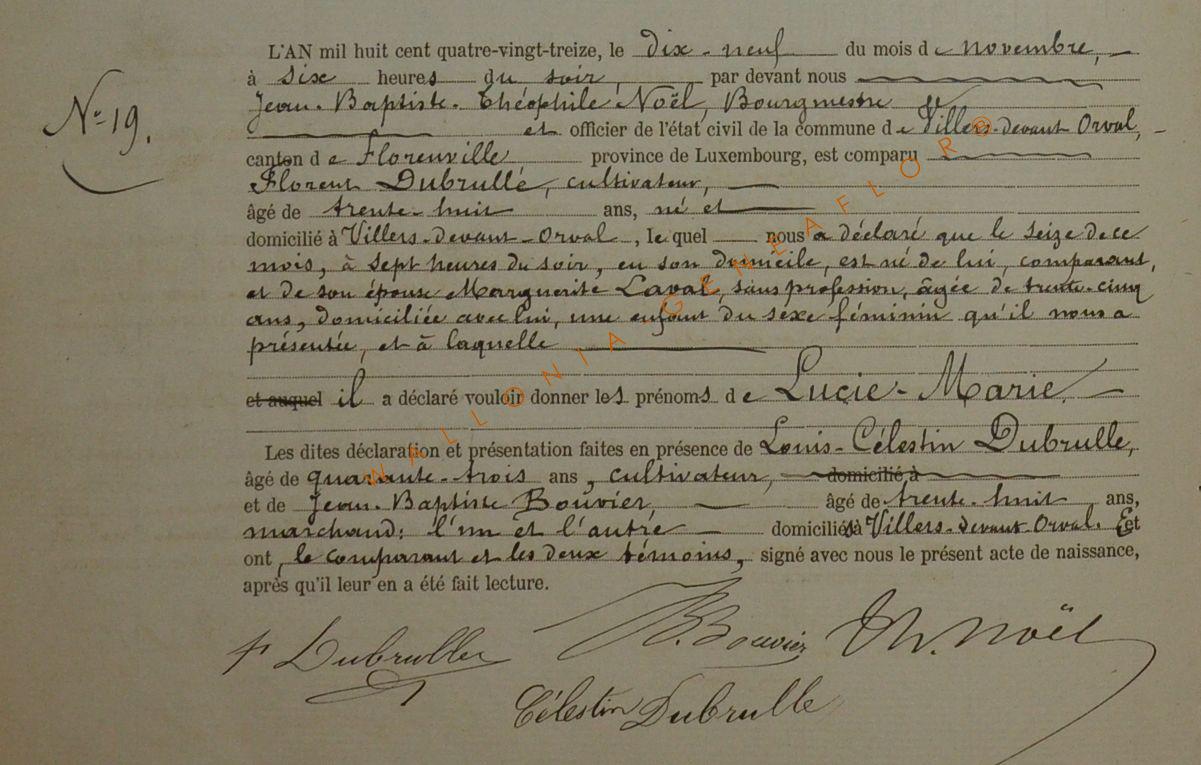 L'AN mil huit cent quatre-vingt-treize, le dix-neuf du mois de novembre,
à six heures du soir, par devant nous
Jean-Baptiste-Théophile Noël, Bourgmestre
et officier de l'état civil de la commune de Villers-devant Orval,
No 19.
canton de Florenville province de Luxembourg, est comparu
Florent Dubrulle, cultivateur,
âgé de trente-huit ans, né et
domicilié à Villers-devant-Orval, lequel nous a déclaré que le seize de ce
mois, à sept heures du soir, en son domicile, est né de lui, comparant,
et de son épouse Marguerite Laval, sans profession, âgée de trente-cinq
ans, domiciliée avec lui, une enfant du sexe féminin qu'il nous a
présentée, et à laquelle
et auquel il a déclaré vouloir donner les prénoms de Lucie-Marie.
Les dites déclaration et présentation faites en présence de Louis-Célestin Dubrulle,
âgé de quarante-trois ans, cultivateur, domicilié à
et de Jean-Baptiste Bouvier, âgé de trente-huit ans,
marchand; l'un et l'autre domiciliés à Villers-devant-Orval. Et
ont, le comparant et les deux témoins, signé avec nous le présent acte de naissance,
après qu'il leur en a été fait lecture.
F Dubrulle B. Bouvier Th. Noël
Célestin Dubrulle
WALLONIA GENEAFLOR®